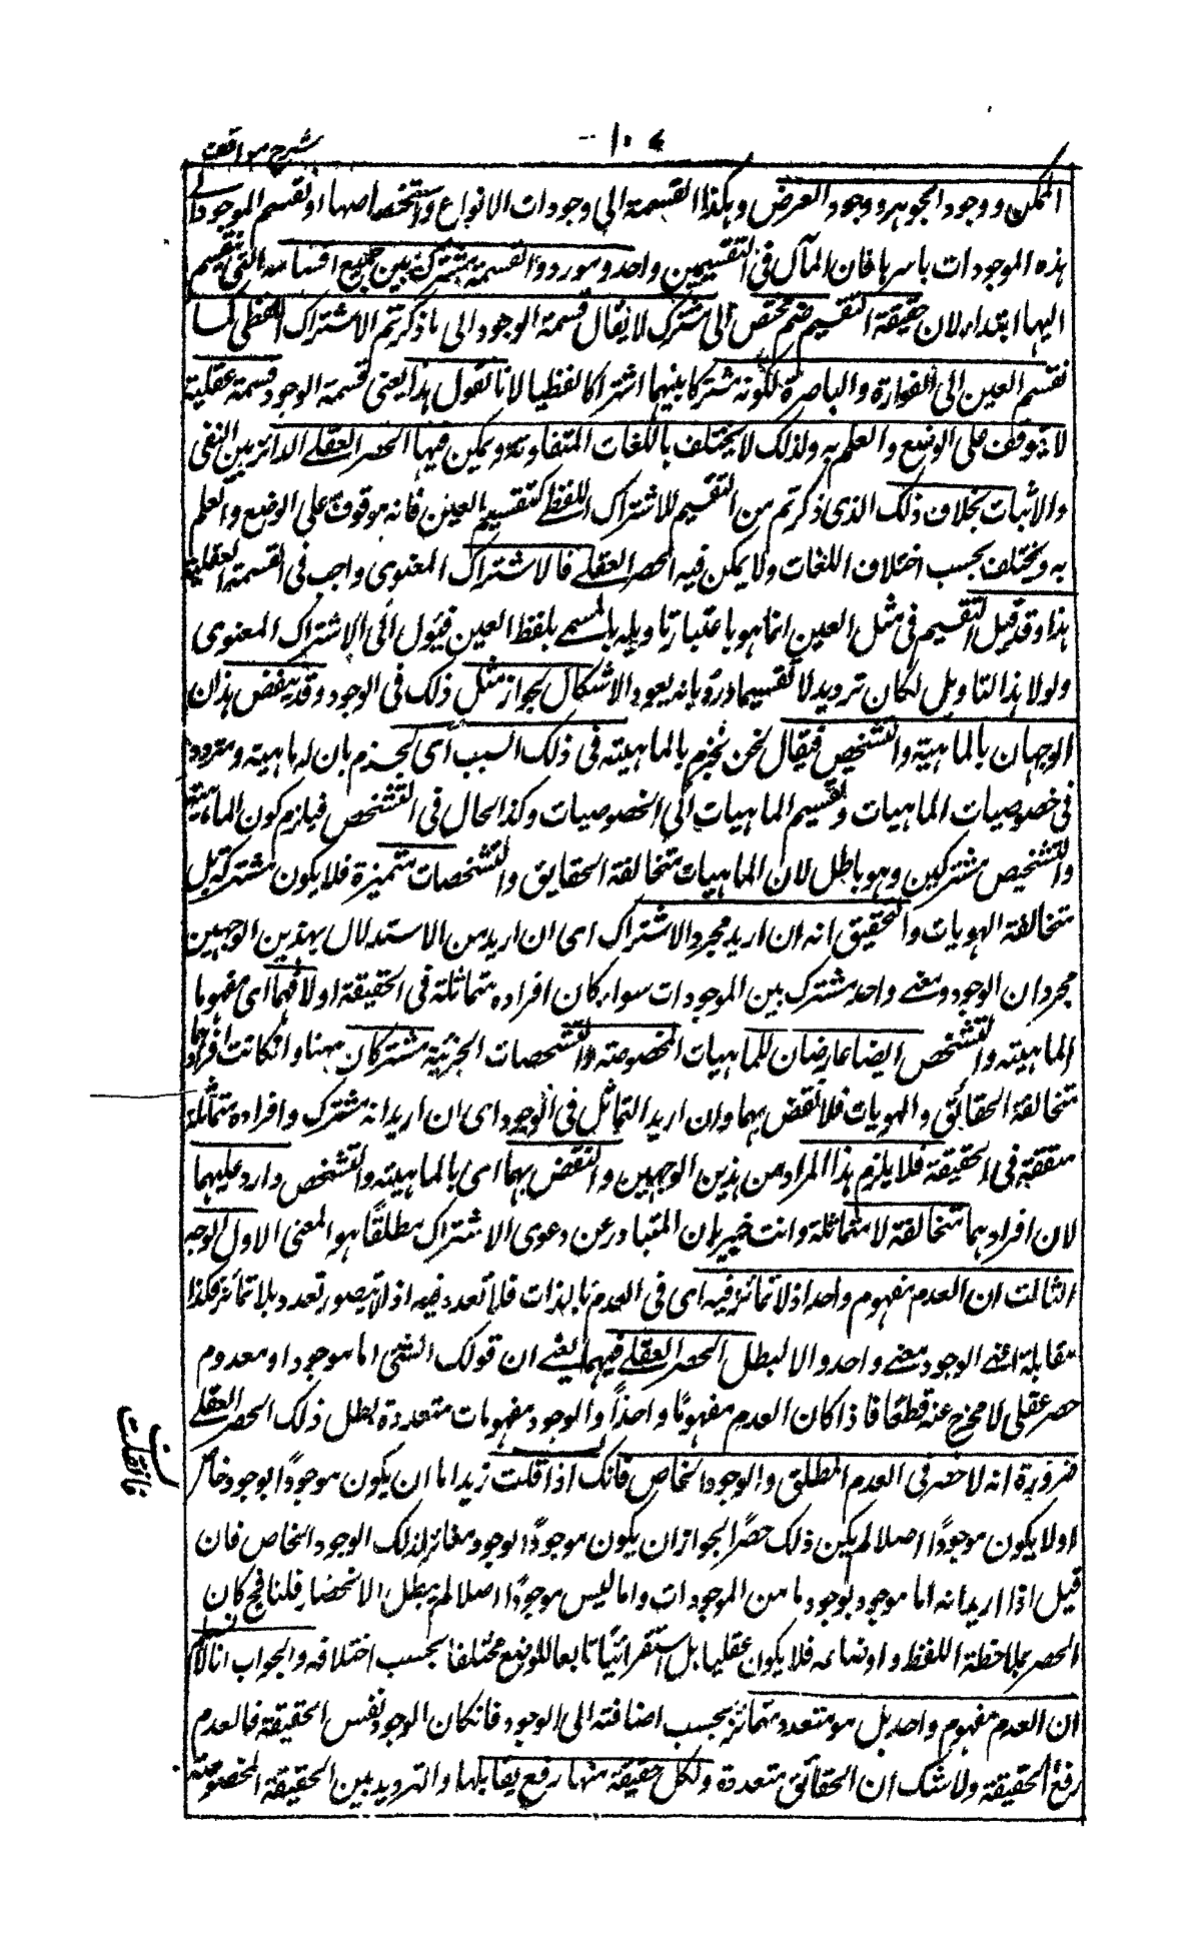 شرح مواقف
١٠٤
الممكن ووجود الجوهر ووجود العرض وهكذا القسمة الى وجودات الانواع واشخاصها او نقسم الموجود الى
هذه الموجودات باسرها فان المآل فى التقسيمين واحد ومورد القسمة مشترك بين جميع اقسامه التى ينقسم
اليها ابتداء لان حقيقة التقسيم ضم مختص الى مشترك لا يقال قسمة الوجود الى ما ذكرتم للاشتراك اللفظى كما
نقسم العين الى الفوارة والباصرة لكونه مشتركا بينهما اشتراكا لفظيا لانا نقول هذا يعنى قسمة الوجود قسمة عقلية
لا يتوقف على الوضع والعلم به ولذلك لا يختلف باللغات المتفاوتة ويمكن فيها الحصر العقلے الدائر بين النفى
والاثبات بخلاف ذلك الذى ذكرتم من التقسيم للاشتراك اللفظے كتقسيم العين فانه موقوف على الوضع والعلم
به ويختلف بحسب اختلاف اللغات ولا يمكن فيه الحصر العقلے فالاشتراك المعنوى واجب فى القسمة العقلية
هذا وقد قيل التقسيم فى مثل العين انما هو باعتبار تاويله بالمسمے بلفظ العين فيئول الى الاشتراك المعنوى
ولولا هذا التاويل لكان ترديدا لا تقسيما ورد بانه يعود الاشكال لجواز مثل ذلك فى الوجود وقد ينقض هذان
الوجهان بالماهية والتشخص فيقال نحن نجزم بالماهيته فى ذلك السبب اى نجزم بان له ماهية ونتردد
فى خصوصيات الماهيات ونقسم الماهيات الى الخصوصيات وكذا الحال فى التشخص فيلزم كون الماهية
والتشخص مشتركين وهو باطل لان الماهيات متخالفة الحقايق والتشخصات متميزة فلا يكون مشتركة بل
متخالفة الهويات والتحقيق انه ان اريد مجرد الاشتراك اى ان اريد من الاستدلال بهذين الوجهين
مجرد ان الوجود معنے واحد مشترك بين الموجودات سواء كان افراده متماثلة فى الحقيقة او لا فهما اى مفهوما
الماهيته والتشخص ايضا عارضان للماهيات المخصوصته والتشخصات الجزئية مشتركان بهنا وانكانت افرادهما
متخالفة الحقائق والهويات فلا نقض بهما وان اريد التماثل فى الوجود اى ان اريد انه مشترك وافراده متماثلة
متفقة فى الحقيقة فلا يلزم هذا المراد من هذين الوجهين والنقض بهما اى بالماهيته والتشخص وارد عليهما
لان افرادهما متخالفة لا متماثلة وانت خبير بان المتبادر عن دعوى الاشتراك مطلقًا هو المعنى الاول الوجه
الثالث ان العدم مفهوم واحد اذ لا تمائز فيه اى فى العدم بالذات فلا تعدد فيه اذ لا يتصور تعدد بلا تمائز فكذا
مقابلة اعنے الوجود معنے واحد والا لبطل الحصر العقلے فيهما يعنے ان قولك الشئ اما موجود او معدوم
حصر عقلى لا مخرج عنه قطعًا فاذا كان العدم مفهومًا واحدًا والوجود مفهومات متعددة بطل ذلك الحصر العقلے
ضرورة انه لا حصر فى العدم المطلق والوجود الخاص فانك اذا قلت زيد اما ان يكون موجودًا بوجود خاص
او لا يكون موجودًا اصلا لم يكن ذلك حصرًا لجواز ان يكون موجودًا بوجود مغائر لذلك الوجود الخاص فان
قيل اذا اريد انه اما موجود بوجود ما من الموجودات واما ليس موجودًا اصلا لم يبطل الانحصار قلنا فح كان
الحصر بملاحظة اللفظ واوضاعه فلا يكون عقليا بل استقرائيًا تابعا للوضع مختلفا بحسب اختلافه والجواب انا لا نسلم
ان العدم مفهوم واحد بل هو متعدد متمائز بحسب اضافته الى الوجود فانكان الوجود نفس الحقيقة فالعدم
رفع الحقيقة ولا شك ان الحقائق متعددة ولكل حقيقة منها رفع يقابلها والترديد بين الحقيقة المخصوصة